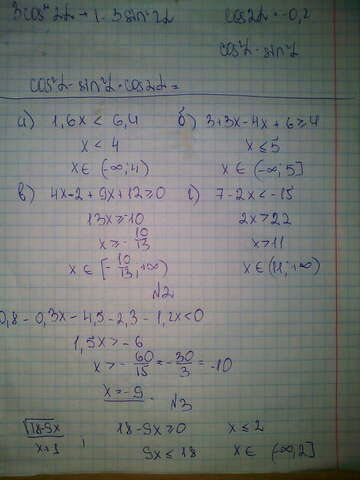 3cos² 2α + 1 - 3sin² 2α cos2α = -0,2
cos²α - sin²α
cos²α - sin²α · cos2α =
а) 1,6x < 6,4 б) 3+3x-4x+6≥4
x < 4 x ≤ 5
x ∈ (-∞; 4) x ∈ (-∞; 5]
в) 4x-2+9x+12≥0 г) 7-2x<-15
13x≥-10 2x>22
x≥-10/13 x>11
x ∈ [-10/13; +∞) x ∈ (11; +∞)
№2
0,8-0,3x-4,5-2,3-1,2x<0
1,5x>-6
x>-60/15=-30/3=-10
x=-9
№3
√18-9x / x+3 , 18-9x≥0 x≤2
9x≤18 x ∈ (-∞; 2]